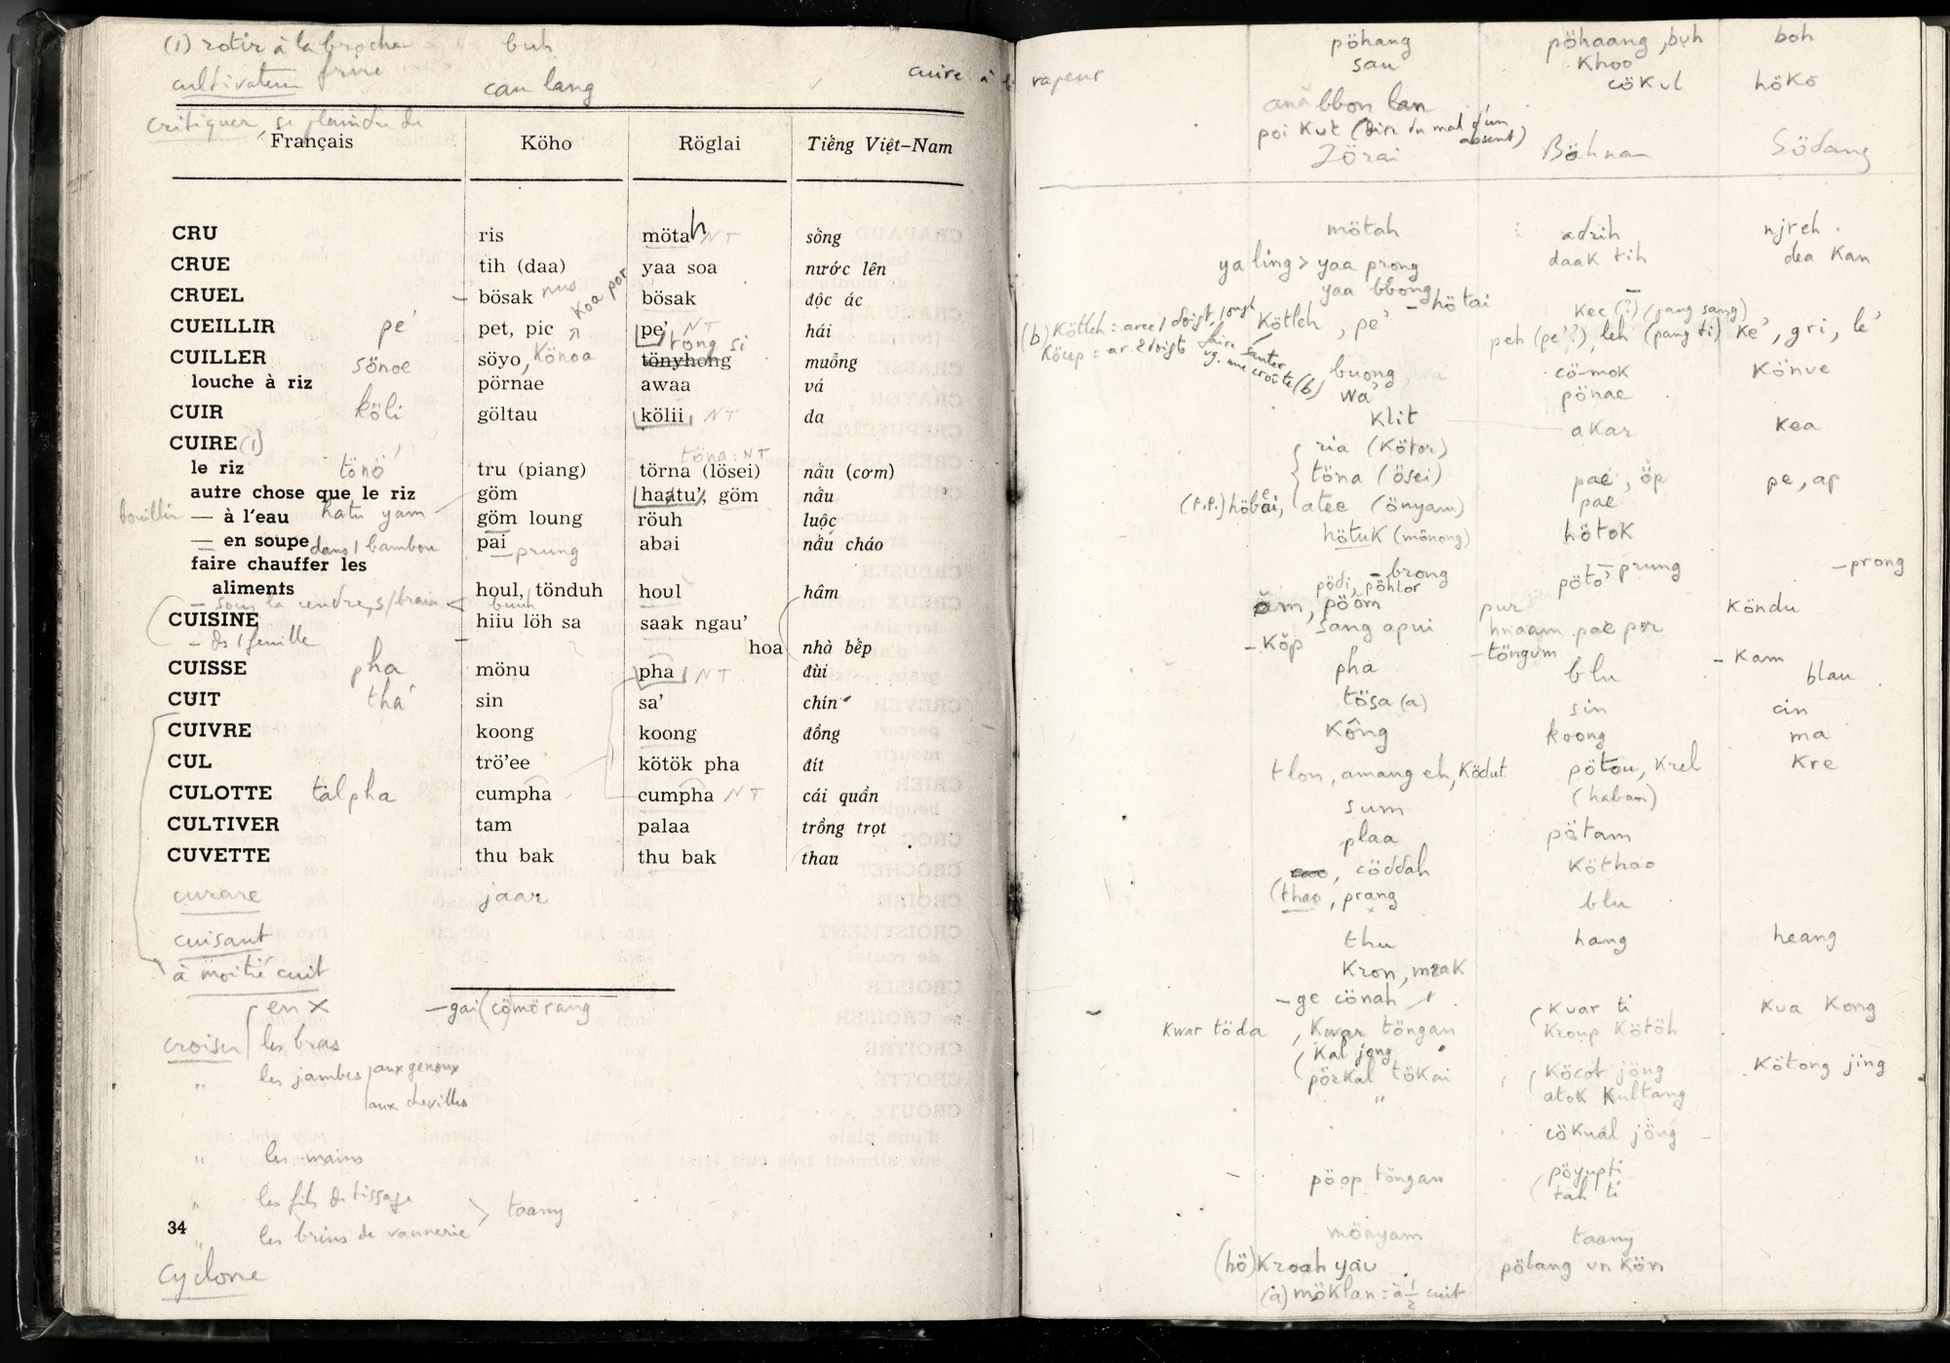 (1) rotir à la broche buh
cultivateur frire cau lang cuire à la
critiquer, se plaindre de
Français Köho Röglai Tiếng Việt-Nam
CRU ris mötah NT sống
CRUE tih (daa) yaa soa nước lên
CRUEL – bösak nus bösak độc ác
koa por
CUEILLIR pe' pet, pic pe' NT hái
rong si
CUILLER sönoe söyo, könoa tönyhong muỗng
louche à riz pörnae awaa vá
CUIR köli göltau kölii NT da
CUIRE (1)
töna : NT
le riz tönö' tru (piang) törna (lösei) nấu (cơm)
autre chose que le riz göm haatu', göm nấu
bouillir — à l'eau hatu yam göm loung röuh luộc
— en soupe dans 1 bambou pai – prung abai nấu cháo
faire chauffer les
aliments houl, tönduh houl hâm
– sous la cendre, s/braise buuh
CUISINE hiiu löh sa saak ngau'
– ds 1 feuille hoa nhà bếp
CUISSE pha mönu pha NT đùi
CUIT tha' sin sa' chín
CUIVRE koong koong đồng
CUL trö'ee kötök pha đít
CULOTTE talpha cumpha cumpha NT cái quần
CULTIVER tam palaa trồng trọt
CUVETTE thu bak thu bak thau
curare jaar
cuisant
à moitié cuit
en X – gai (cömörang
croiser les bras
" les jambes aux genoux
aux chevilles
" les mains
" les fils de tissage
taany
34
" les brins de vannerie
Cyclone
pöhang pöhaang, buh boh
sau khoo
vapeur cökul hökö
ană bbon lan
poi kut (dire du mal d'un absent)
Jörai Böhnar Södang
mötah adrih njreh
ya ling > yaa prong daak tih dea kan
yaa bbong
– hö tai kec (?) (pang sang)
(b) Kötleh : avec 1 doigt, 1 ongle Kötleh, pe' peh (pe'?), leh (pang ti) ke', gri, le'
Köcep = av. 2 doigts faire sauter
vg. une croûte (b)
buong, wa cö-mok könve
wa' pönae
klit akar kea
ria (kötor)
töna (ösei) pae, öp pe, ap
(P.P.) höbai, atee (önyam) pae
hötuk (mönong) hötok
– brong – prung – prong
pödi, pöhlor pötö
ăm, pööm pur köndu
sang apui hnaam pae por
– köp – töngum – kam
pha blu blau
tösa (a) sin cin
kông koong ma
tlon, amang eh, ködut pötou, krel kre
(haban)
sum
plaa pötam
cöddah köthao
(thao, prang blu
thu hang heang
kron, mrak
– ge cönah
kuar ti kua kong
kwar töda, kwar töngan kroup kötöh
kal jong
pörkal tökai köcot jöng kötong jing
" atok kultang
cöknál jöng
pöop töngan pöyup ti
tah ti
mönyam taany
(hö) kroah yau pölang un kön
(a) möklan : à ½ cuit